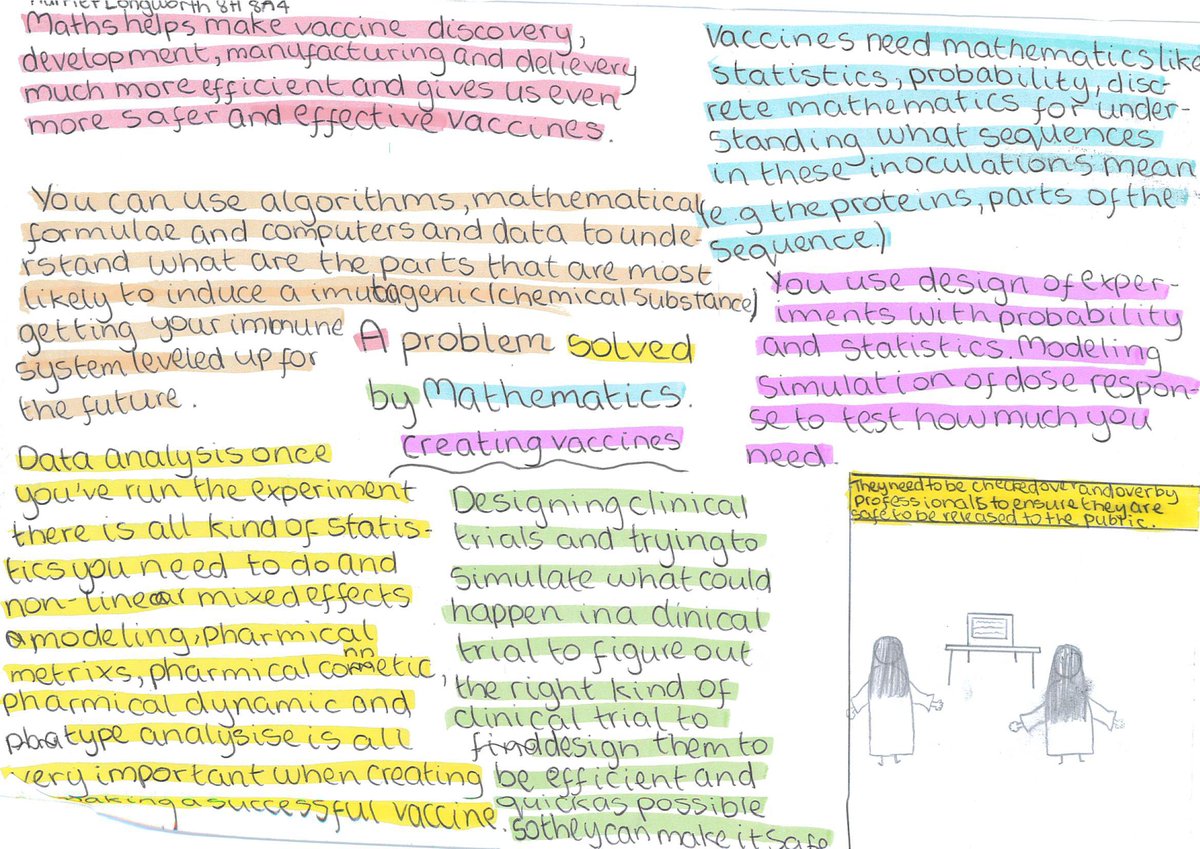 Harriet Longworth 8H 8A4
Maths helps make vaccine discovery,
development, manufacturing and delievery
much more efficient and gives us even
more safer and effective vaccines.
Vaccines need mathematics like
statistics, probability, disc-
rete mathematics for under-
standing what sequences
in these inoculations mean
(e.g the proteins, parts of the
sequence.)
You can use algorithms, mathematical
formulae and computers and data to unde-
rstand what are the parts that are most
likely to induce a imutagenic (chemical substance)
getting your immune
system leveled up for
the future.
A problem solved
by Mathematics.
creating vaccines
You use design of exper-
iments with probability
and statistics. Modeling
simulation of dose respon-
se to test how much you
need.
Data analysis once
you've run the experiment
there is all kind of statis-
tics you need to do and
non-linear mixed effects
modeling, pharmical
metrixs, pharmical
pharmical dynamic and
type analysise is all
very important when creating
making a successful vaccine.
Designing clinical
trials and trying to
simulate what could
happen in a clinical
trial to figure out
the right kind of
clinical trial to
design them to
be efficient and
quick as possible
so they can make it safe
They need to be checked over and over by
professionals to ensure they are
safe to be released to the public.